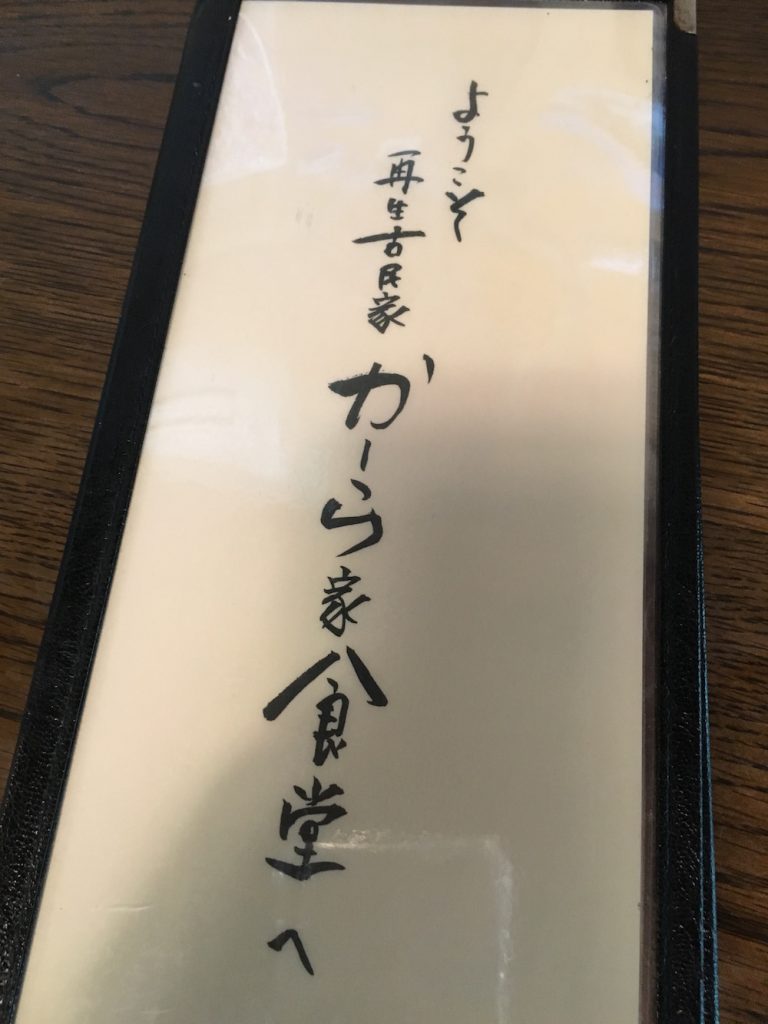 ようこそ
再生古民家
かーら家食堂へ